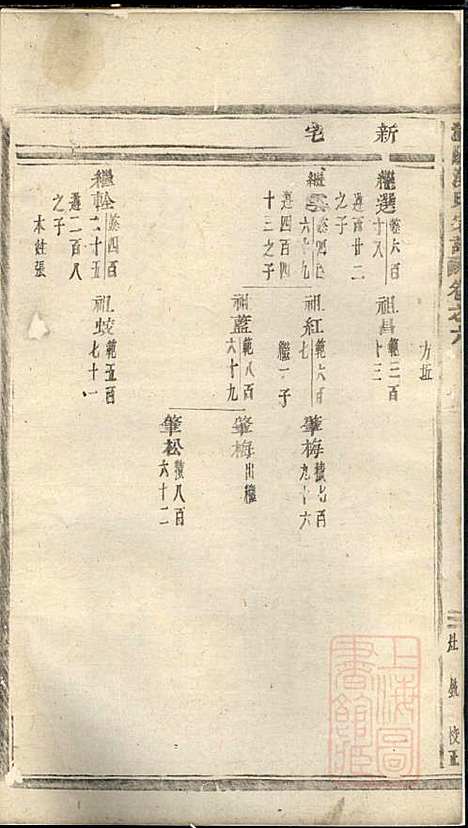 新宅
方坵
繼選
十八
六百
遵百廿二
之子
祖昌
範三百
十三
六十九
遵四百四
十三之子
祖紅
範六百
七
繼一子
肇梅
積七百
九十六
祖藍
範八百
六十九
肇梅出繼
肇松
積八百
六十二
繼幹
四百
二十五
遵二百八
之子
本姓張
祖蛟
範五百
七十一
卷之六
校正
上海圖書館藏